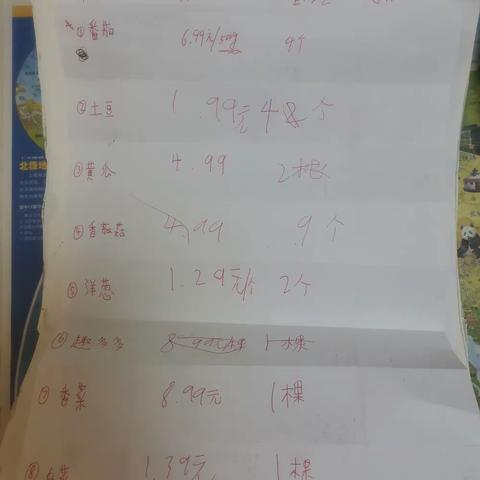 ①番茄 6.99元/500g 9个
②土豆 1.99元 4个
③黄瓜 4.99 2根
④香菇菇 4.99 9个
⑤洋葱 1.29元/个 2个
⑥趣多多 8.99元/棵 1棵
⑦香菜 8.99元 1棵
⑧ 1.39元 1棵
北极地